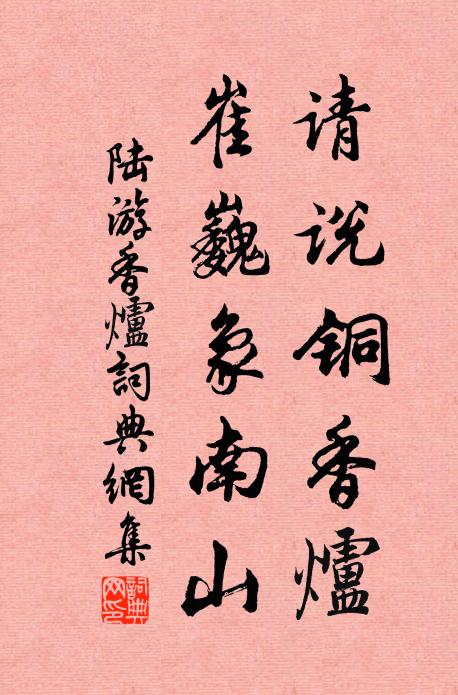 请说铜香爐
崔巍象南山
陆游香爐詞典網集
詞典网印